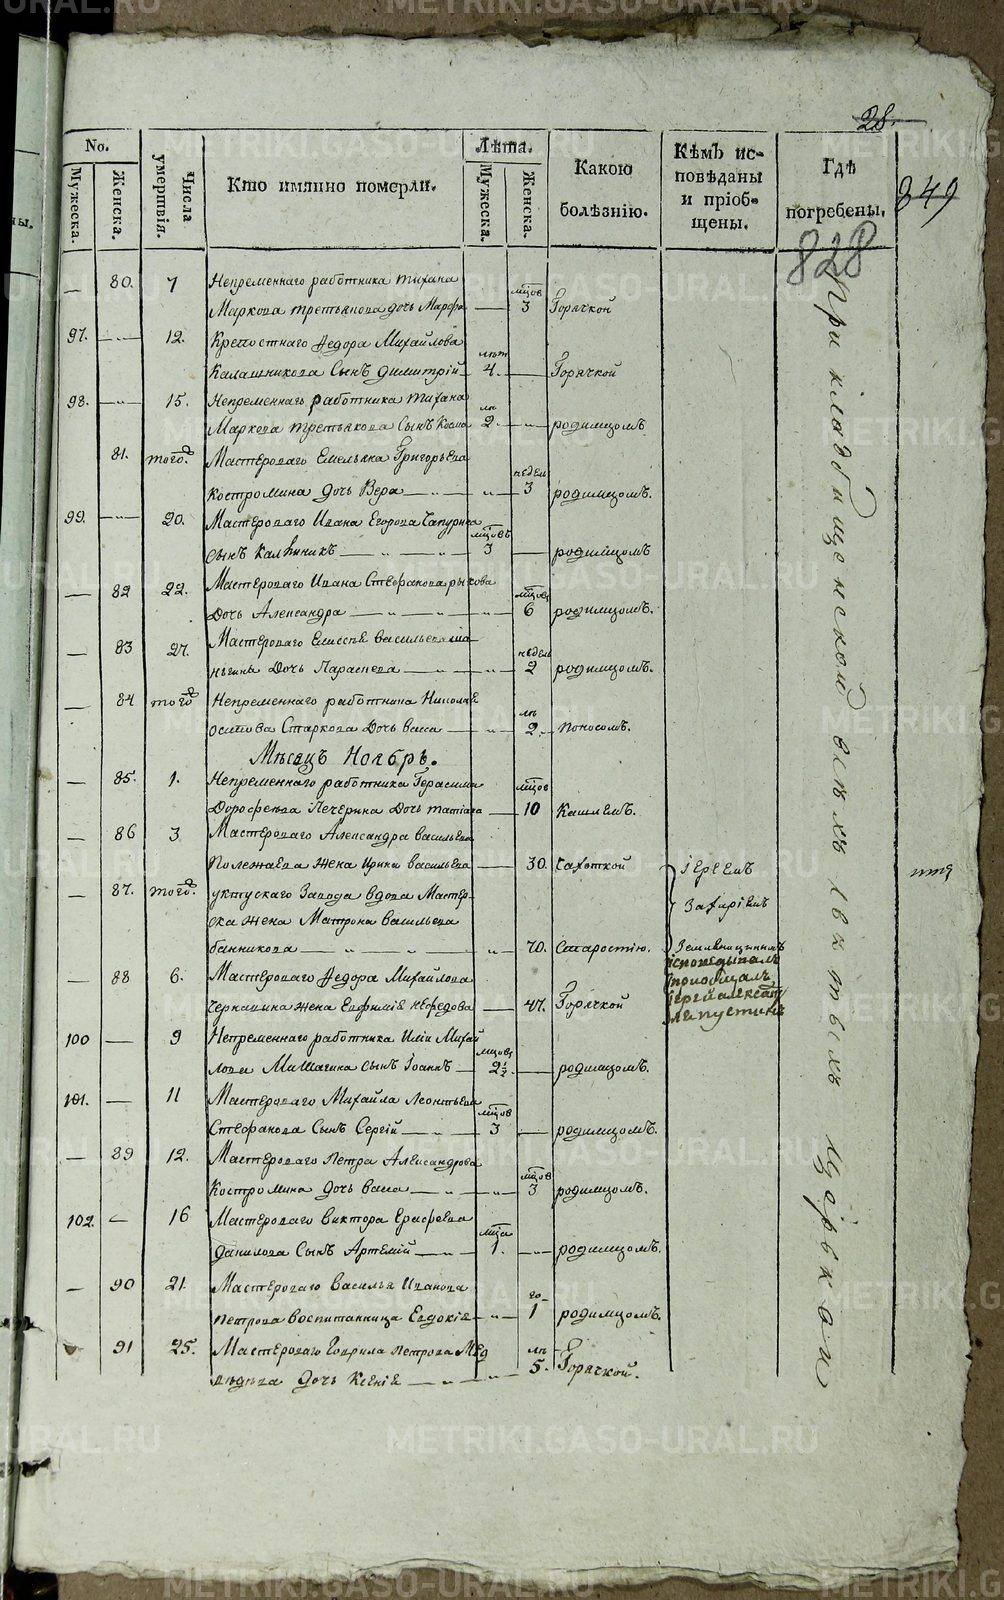 28.
No.
Мужеска.
Женска.
Числа умертвія.
Кто имянно померли.
Лѣта.
Мужеска.
Женска.
Какою болѣзнію.
Кѣмъ исповѣданы и пріобщены.
Гдѣ погребены.
849
828
80. 7 Непременнаго работника Тихана
Маркова третьякова дочь Марфа мцов 3 Горячкой
97. 12. Крепостнаго Федора Михайлова
Калашникова Сынъ Димитрій лѣт 4. Горячкой
98. 15. Непременнагъ работника Тихана
Маркова третьякова Сынъ Косма лѣ 2. родимцомъ
81. тогоо. Мастероваго Емельяна Григорьева
Костромина Дочь Вера недел 3 родимцомъ.
99. 20. Мастероваго Ивана Егорова Чапурина
сынъ Калиникъ мцовъ 3 родимцомъ
82 22. Мастероваго Ивана Стефанова рыкова
Дочь Александра мцовъ 6 родимцомъ.
83 27. Мастероваго Елисея васильева
Дочь Параскева недель 2 родимцомъ.
84 тогоо Непременнаго работника Николае
осипова Старкова Дочь васса лѣ 2. поносомъ.
Мѣсяцъ Ноябрь.
85. 1. Непременнаго работника Герасима
Дорофеева Печерина Дочь татіана мцов 10 Кашлемъ.
86 3 Мастероваго Александра васильева
Полежаева жена Ирина васильева 30. Чахоткой Іереемъ
87. тогоо. уктускаго Завода вдова Мастер-
ска жена Матрона васильева Захаріемъ
банникова 70. Старостію. Земляницынымъ
исповедывалъ
88 6. Мастероваго Федора Михайлова
приобщалъ
жена Евфимія нефедова 47. Горячкой
100 9 Непременнаго работника Иліи Михай
лова сынъ Іоаннъ мцовъ 2½. родимцомъ.
101. 11 Мастероваго Михайла Леонтьева
Стефанова Сынъ Сергій мцов 3 родимцомъ.
89 12. Мастероваго Петра Александрова
Костромина Дочь васса мцов 3 родимцомъ.
102. 16 Мастероваго виктора Ерофеева
данилова Сынъ Артемій мца 1. родимцомъ.
90 21. Мастероваго василья Иванова
петрова воспитанница Евдокія го- 1 родимцомъ.
91 25. Мастероваго Гаврила петрова Мед
ведева Дочь Ксенія лѣ- 5. Горячкой.
При кладбищенской всѣхъ святыхъ церкви